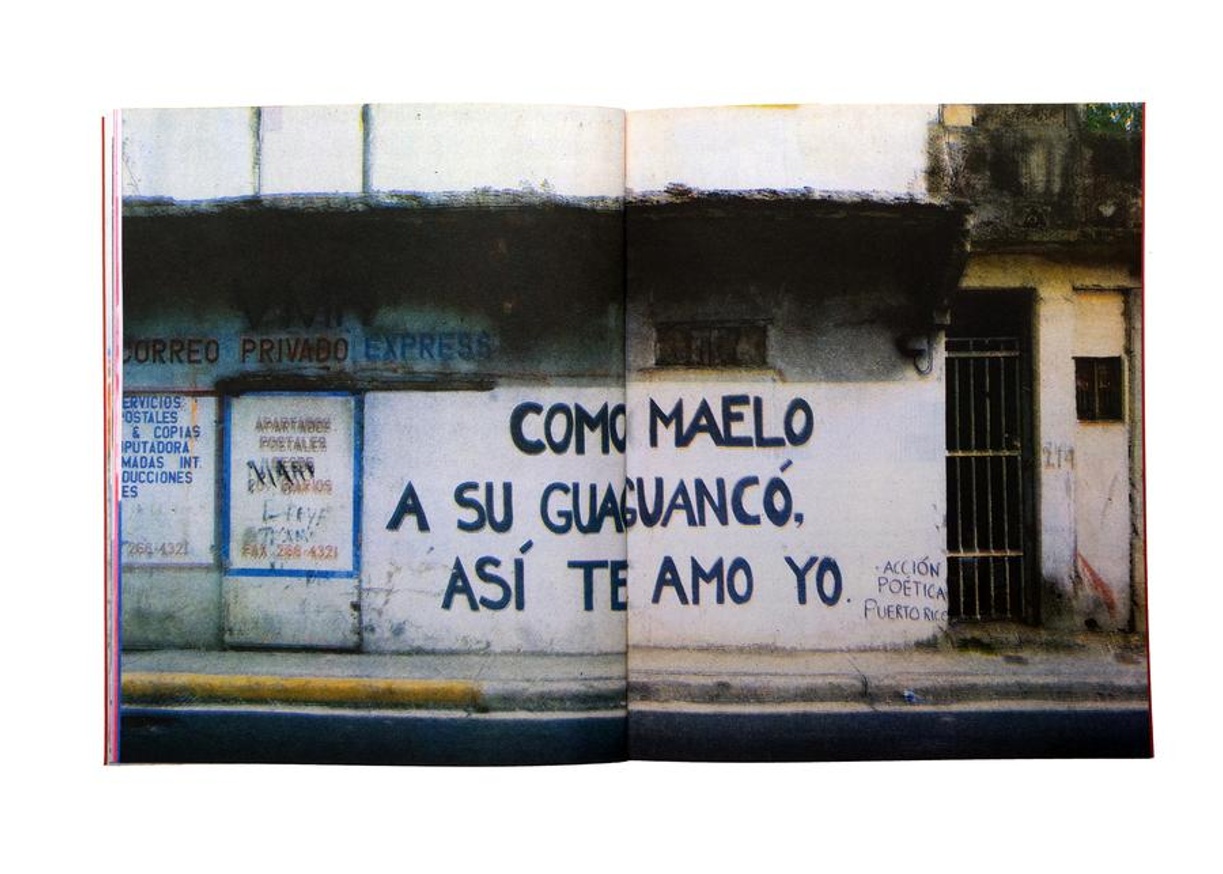 CORREO PRIVADO EXPRESS
ERVICIOS
POSTALES
& COPIAS
MPUTADORA
MADAS INT.
DUCCIONES
ES
268-4321
APARTADOS
POSTALES
DESDE
FAX 268-4321
COMO MAELO
A SU GUAGUANCÓ,
ASÍ TE AMO YO.
·ACCIÓN
POÉTICA
PUERTO RICO